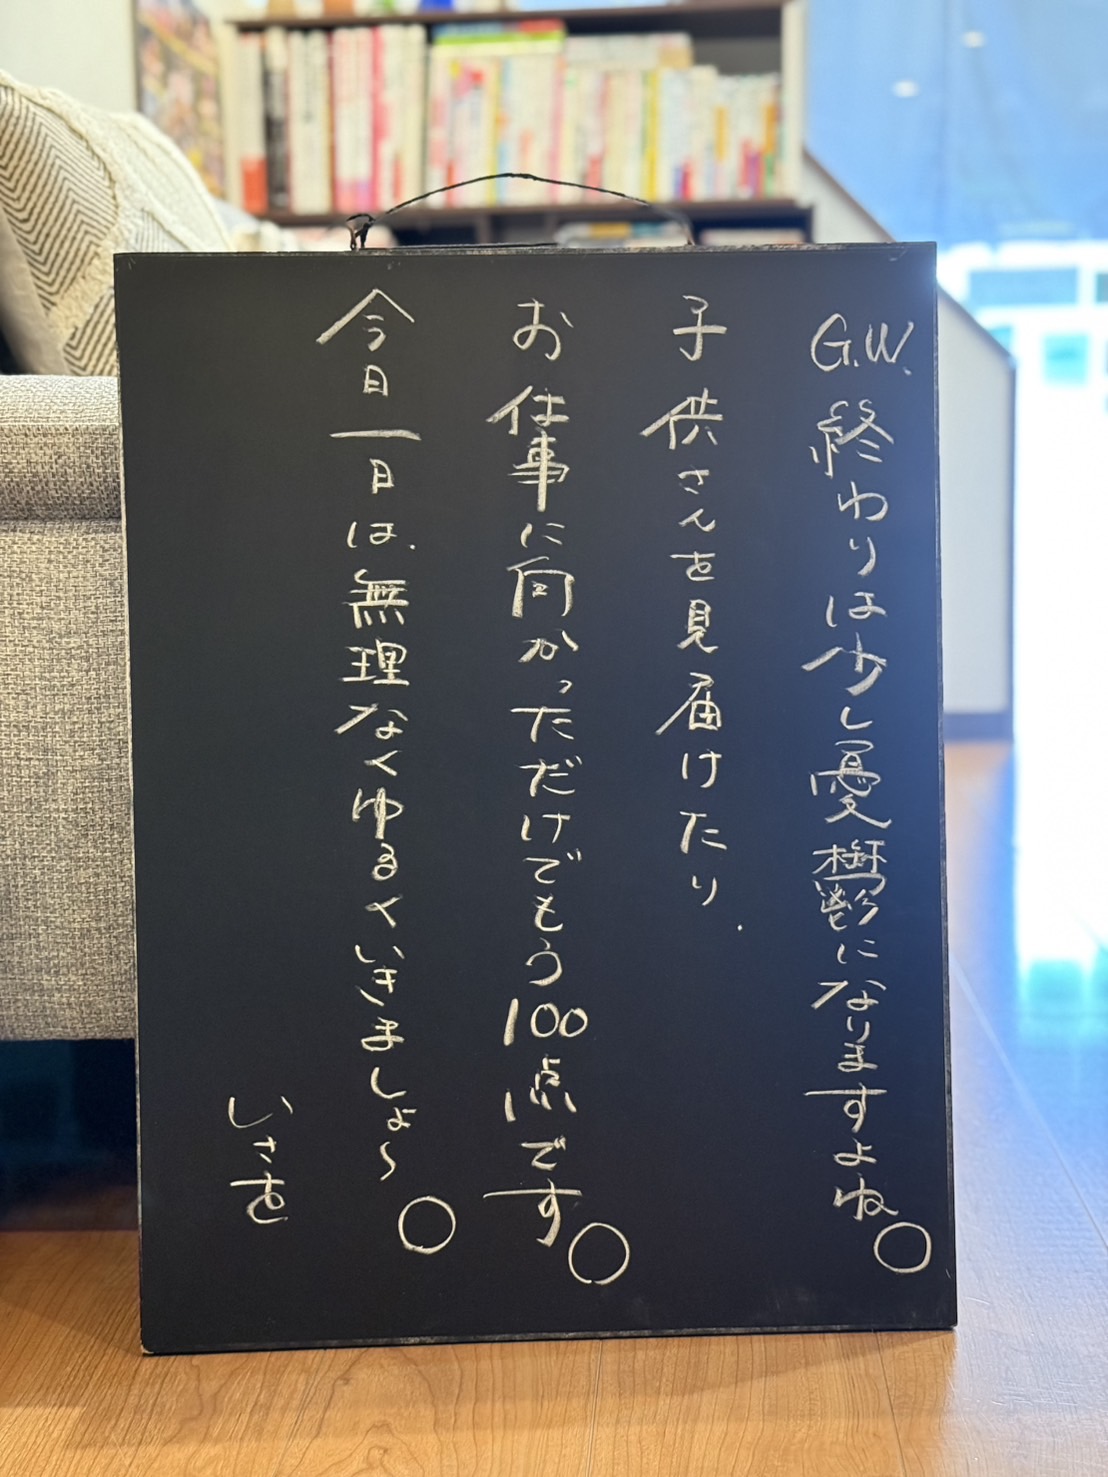 G.W.終わりは少し憂鬱になりますよね。
子供さんを見届けたり.
お仕事に向かっただけでもう100点です。
今日一日は.無理なくゆるくいきましょ〜。
いさを